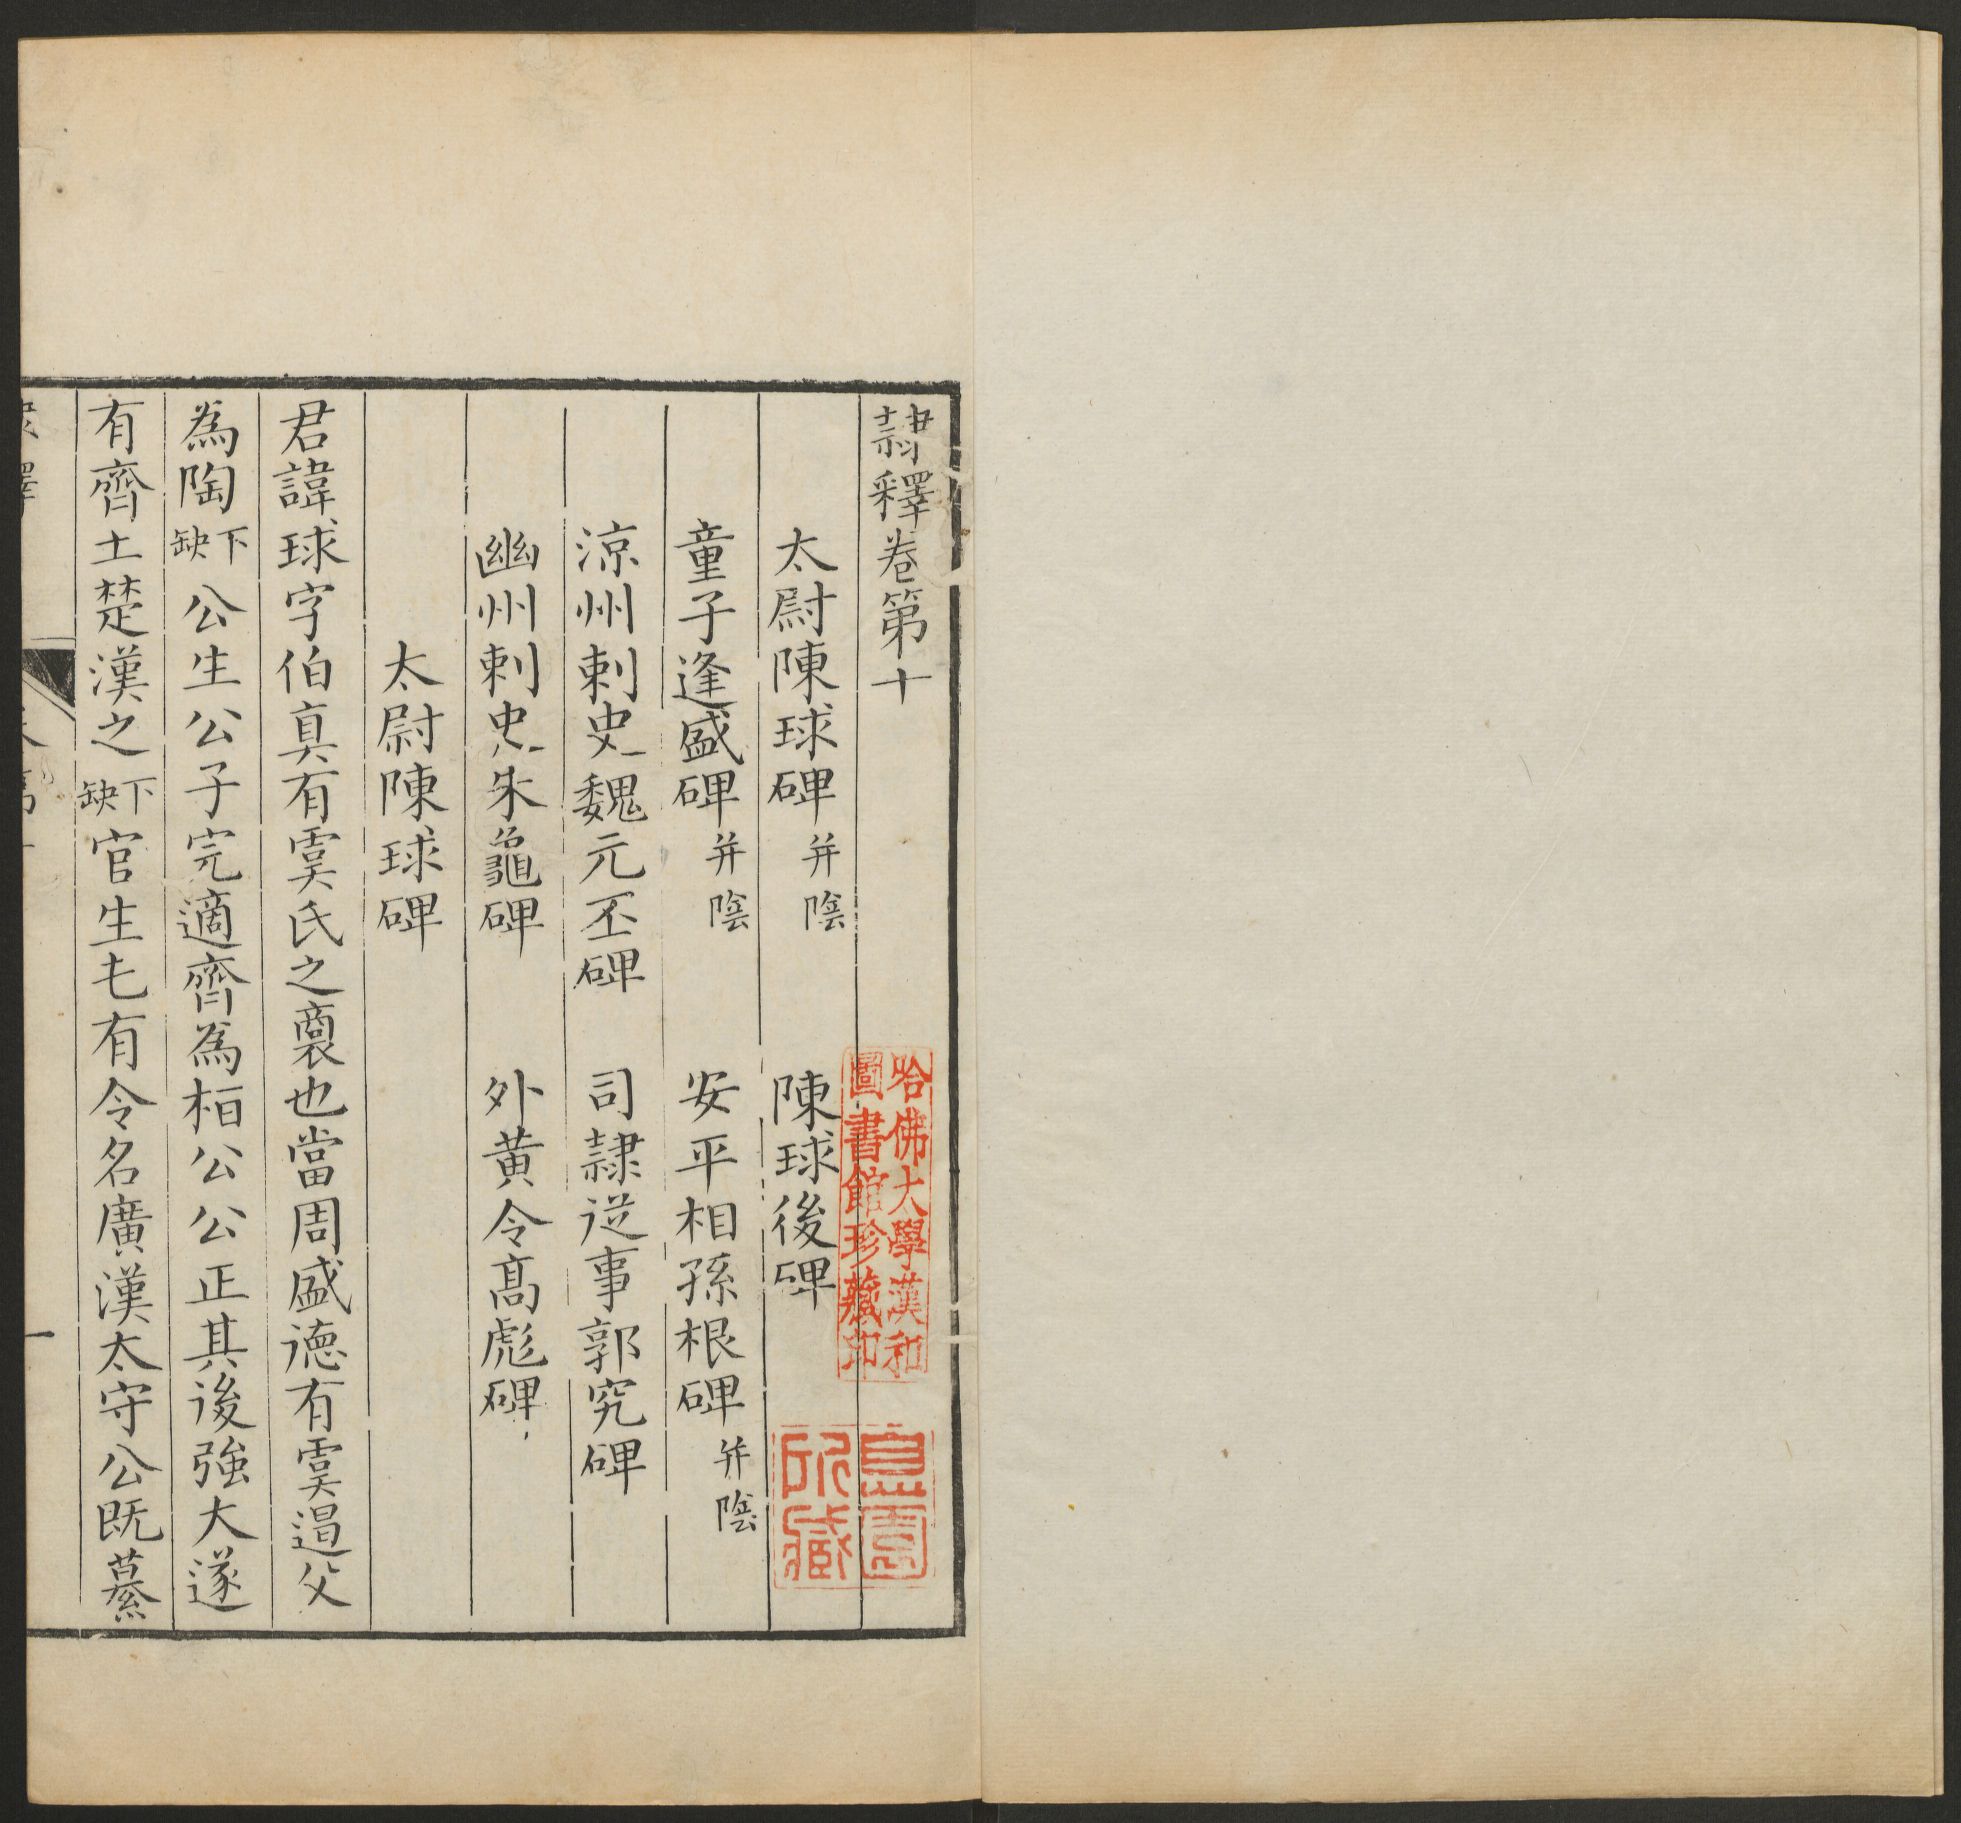 隸釋卷第十
太尉陳球碑 并陰 陳球後碑
童子逢盛碑 并陰 安平相孫根碑 并陰
涼州刺史魏元丕碑 司隸從事郭究碑
幽州刺史朱龜碑 外黃令高彪碑
太尉陳球碑
君諱球字伯真有虞氏之裔也當周盛德有虞遏父
為陶下缺公生公子完適齊為桓公公正其後強大遂
有齊土楚漢之下缺官生屯有令名廣漢太守公既慕
一
哈佛大學漢和
圖書館珍藏印
所藏